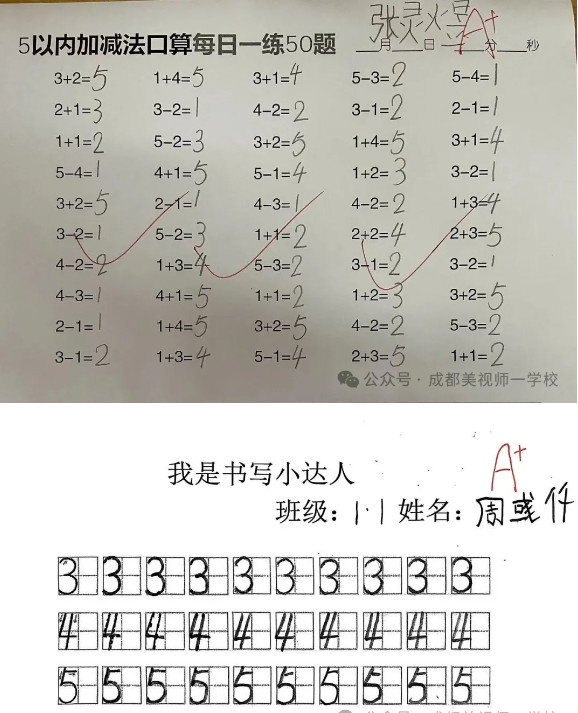 张灵火昱 A+
5以内加减法口算每日一练50题 ___月___日___分___秒
3+2=5 1+4=5 3+1=4 5-3=2 5-4=1
2+1=3 3-2=1 4-2=2 3-1=2 2-1=1
1+1=2 5-2=3 3+2=5 1+4=5 3+1=4
5-4=1 4+1=5 5-1=4 1+2=3 3-2=1
3+2=5 2-1=1 4-3=1 4-2=2 1+3=4
3-2=1 5-2=3 1+1=2 2+2=4 2+3=5
4-2=2 1+3=4 5-3=2 3-1=2 3-2=1
4-3=1 4+1=5 1+1=2 1+2=3 3+2=5
2-1=1 1+4=5 3+2=5 4-2=2 5-3=2
3-1=2 1+3=4 5-1=4 2+3=5 1+1=2
公众号·成都美视师一学校
我是书写小达人 A+
班级：1.1 姓名：周彧仟
3 3 3 3 3 3 3 3 3 3
4 4 4 4 4 4 4 4 4 4
5 5 5 5 5 5 5 5 5 5